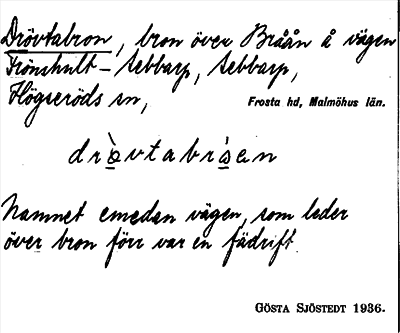 Drövtabron, bron över Bråån å vägen
Frönshult - Sebbarp, Sebbarp,
Högseröds sn,
Frosta hd, Malmöhus län.
drövtabråen
Namnet emedan vägen, som leder
över bron förr var en fädrift.
GÖSTA SJÖSTEDT 1936.